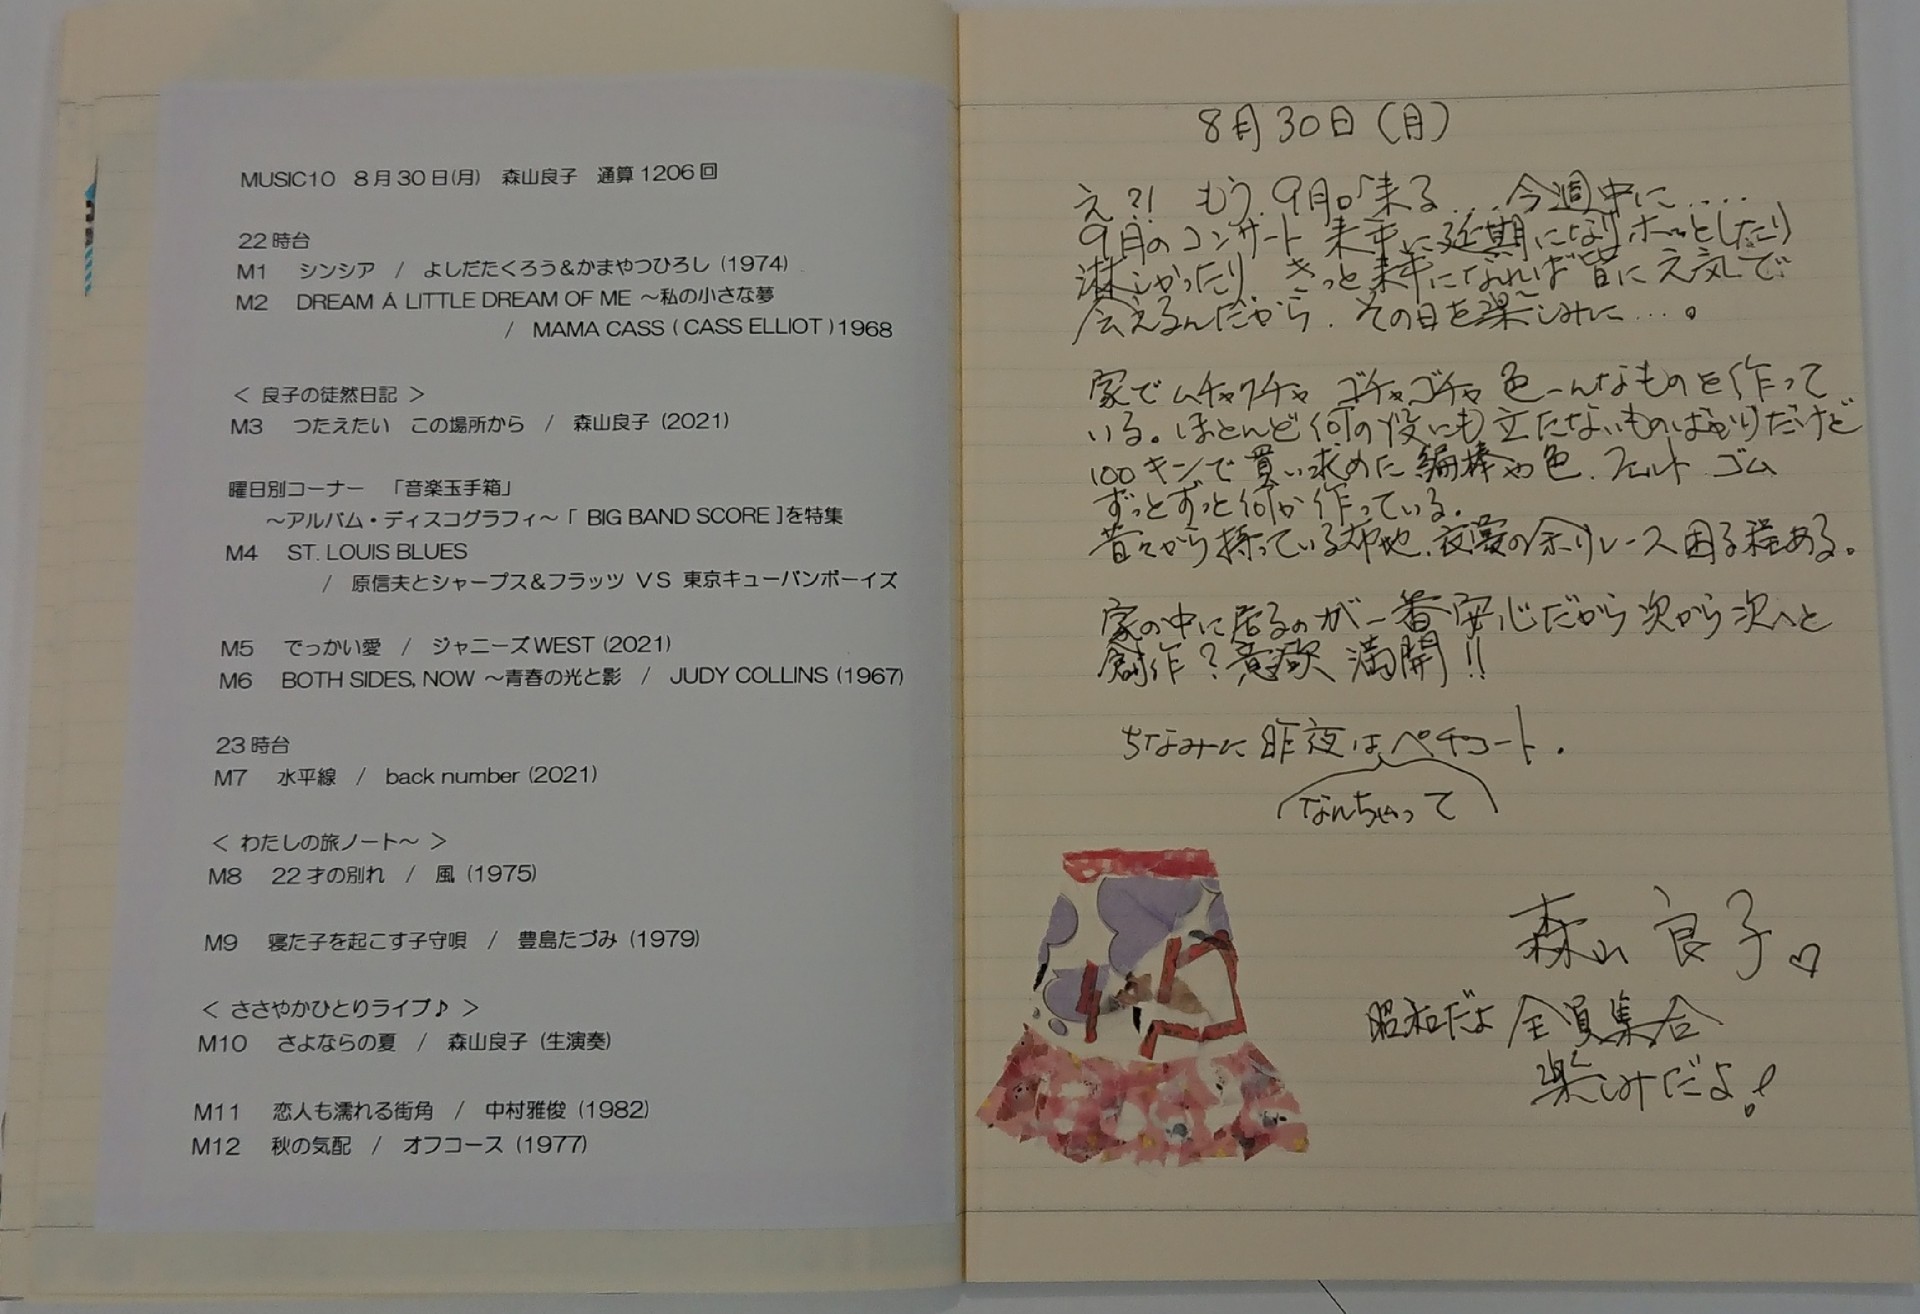 MUSIC10 8月30日(月) 森山良子 通算1206回
22時台
M1 シンシア / よしだたくろう&かまやつひろし (1974)
M2 DREAM A LITTLE DREAM OF ME ～私の小さな夢
/ MAMA CASS ( CASS ELLIOT ) 1968
＜ 良子の徒然日記 ＞
M3 つたえたい この場所から / 森山良子 (2021)
曜日別コーナー 「音楽玉手箱」
～アルバム・ディスコグラフィ～「 BIG BAND SCORE ]を特集
M4 ST. LOUIS BLUES
/ 原信夫とシャープス&フラッツ VS 東京キューバンボーイズ
M5 でっかい愛 / ジャニーズWEST (2021)
M6 BOTH SIDES, NOW ～青春の光と影 / JUDY COLLINS (1967)
23時台
M7 水平線 / back number (2021)
＜ わたしの旅ノート～ ＞
M8 22才の別れ / 風 (1975)
M9 寝た子を起こす子守唄 / 豊島たづみ (1979)
＜ ささやかひとりライブ♪ ＞
M10 さよならの夏 / 森山良子 (生演奏)
M11 恋人も濡れる街角 / 中村雅俊 (1982)
M12 秋の気配 / オフコース (1977)
8月30日(月)
え?! もう、9月が来る....今週中に....
9月のコンサート 来年に延期になりホッとしたり
淋しかったり きっと来年になれば皆に元気で
会えるんだから、その日を楽しみに...。
家でムチャクチャ ゴチャゴチャ 色ーんなものを作って
いる。ほとんど何の役にも立たないものばかりだけど
100キンで買い求めた編棒や色、フェルト ゴム
ずっとずっと何か作っている。
昔々から持っている布地、衣裳の余りレース困る程ある。
家の中に居るのが一番安心だから次から次へと
創作?意欲 満開!!
ちなみに昨夜はペチコート.
なんちゃって
森山良子♡
昭和だよ 全員集合
楽しみだよ!